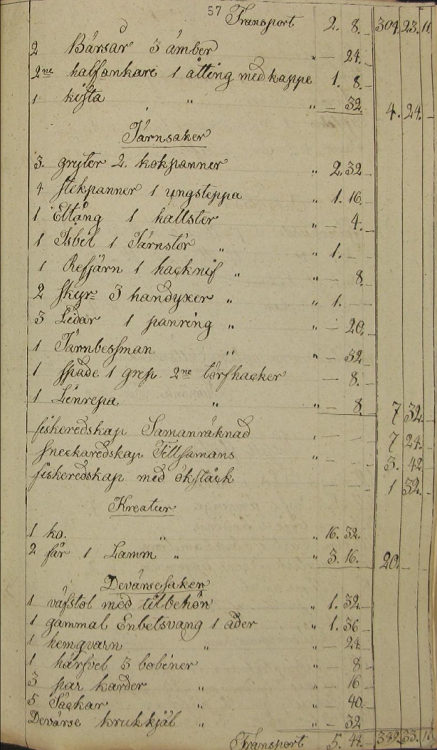 57
Transport 2. 8. 304 23. 11
2 Bärsar 3 ämber " — 24.
2ne halfankare 1 åtting med kappe 1. 8.
1 kista " " " — 32. 4. 24.
Järnsaker
3. grÿter 2. kokpanner " 2,32
4 stekpanner 1 ÿngsleppa " 1. 16.
1 Eltång 1 hallster " — 4.
1 Isbil 1 Järnstör " " 1. —
1 Refjärn 1 hacknif " " — 8.
2 3 handÿxer " " 1. —
3 Lidar 1 panring " " — 20.
1 Järnbessman " " — 32.
1 spade 1 grep 2ne törfhacker — 8.
1 Linrepa " " — 8. 7 32.
fiskeredskap Samanräknad " 7 24.
Snickaredskap Tillsamans " 3. 42.
fiskeredskap med 1 32.
Kreatur
1 ko. " " 16. 32.
2 får 1 Lamm " " 3. 16. 20. —
Devärsesaker
1 väfstol med tilbehör " 1. 32.
1 gammal Enbetsvang 1 åder " 1. 36
1 hemqvarn " " — 24
1 härfvel 3 bobiner " 8
3 par karder " " — 16
5 Säckar " " — 40.
Devärse krukkjäl " " — 32
Transport 5. 44. 332 33. 11